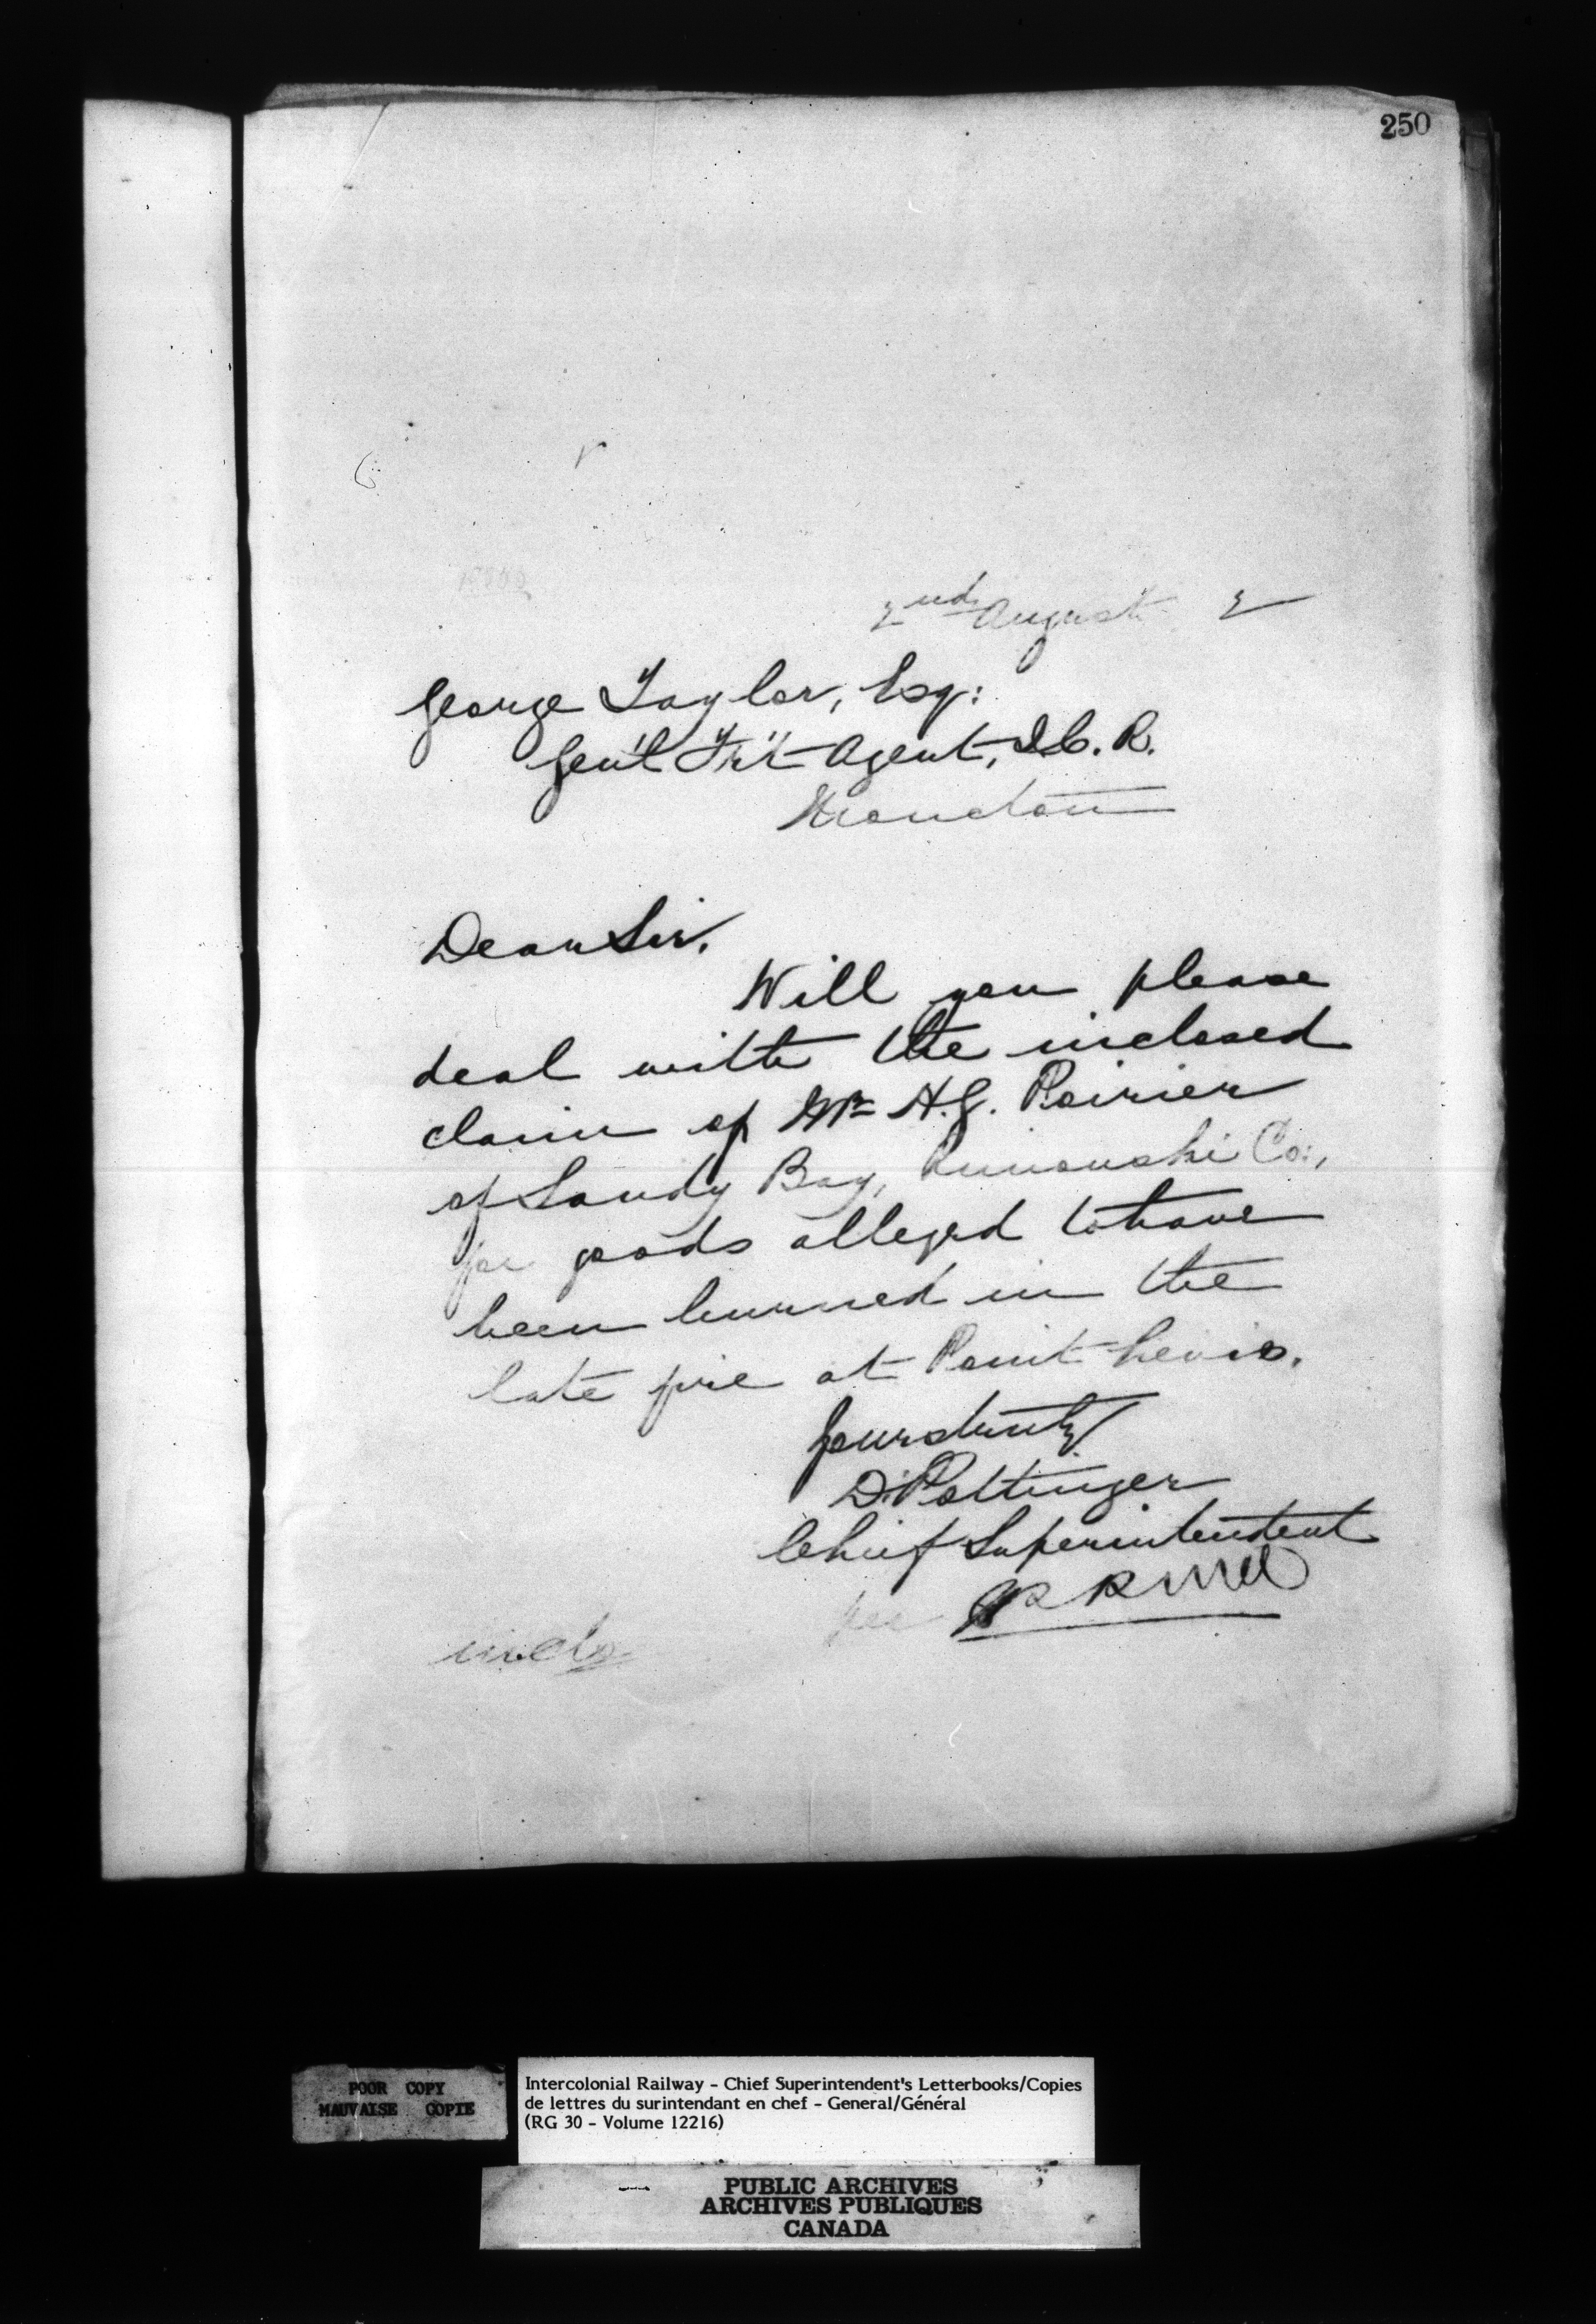 250
2nd August 2
George Taylor, Esq:
Gen'l Fr't Agent, I.C.R.
Moncton
Dear Sir,
Will you please
deal with the inclosed
claim of Mr H.G. Poirier
of Sandy Bay, Rimouski Co.,
for goods alleged to have
been burned in the
late fire at Point Levis.
Yours truly
D. Pottinger
Chief Superintendent
per
incls
POOR COPY
MAUVAISE COPIE
Intercolonial Railway - Chief Superintendent's Letterbooks/Copies
de lettres du surintendant en chef - General/Général
(RG 30 - Volume 12216)
PUBLIC ARCHIVES
ARCHIVES PUBLIQUES
CANADA